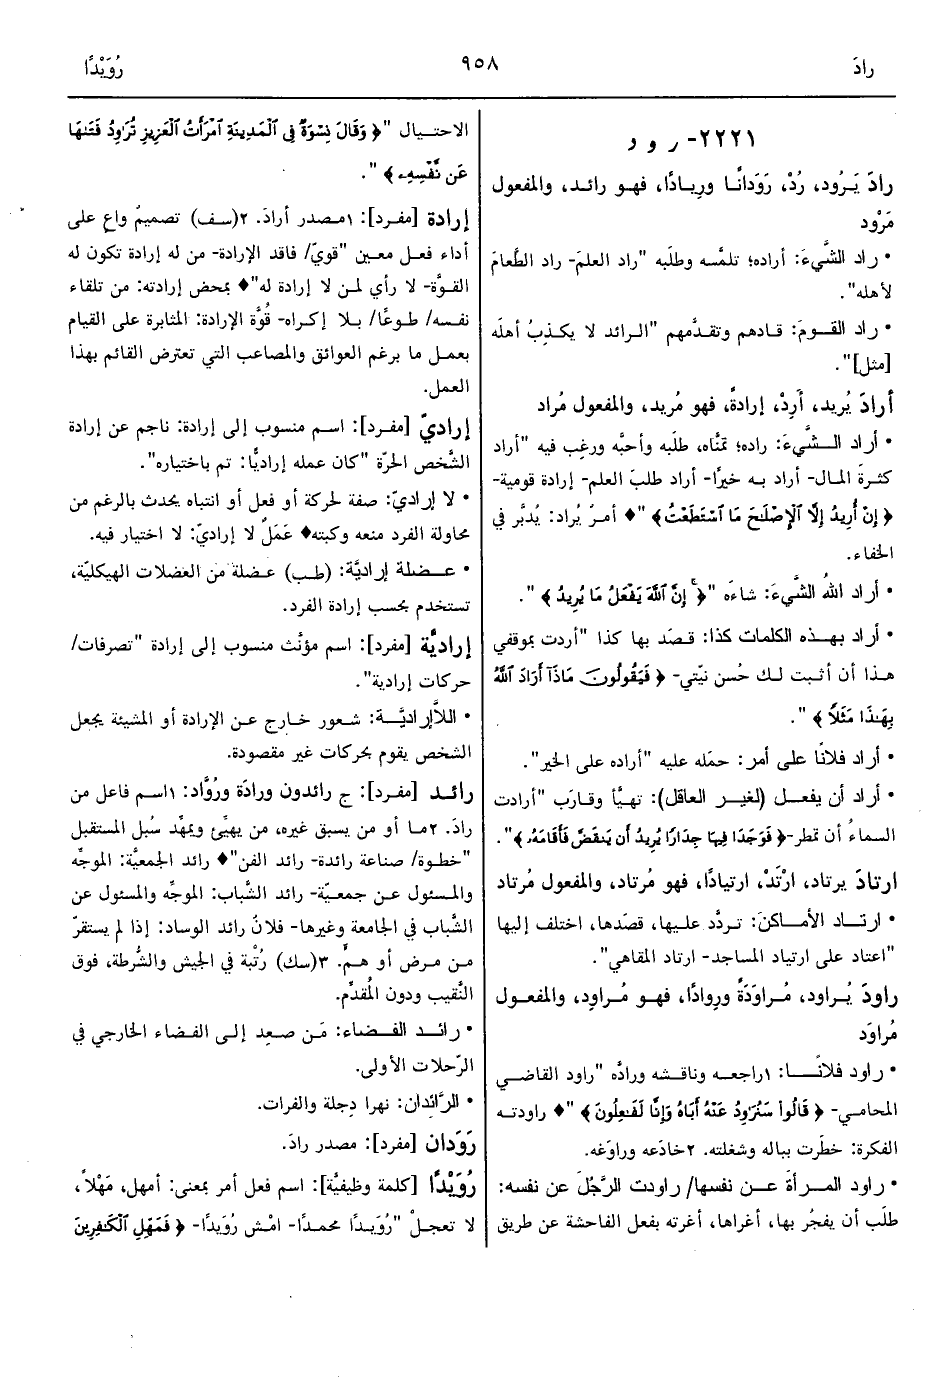 رادَ
٩٥٨
رُوَيْدًا
٢٢٢١- ر و د
رادَ يَرُود، رُدْ، رَوَدانًا ورِيادًا، فهو رائد، والمفعول
مَرْود
• راد الشَّيءَ: أراده؛ تلمَّسه وطلَبه "راد العلمَ- راد الطَّعامَ
لأهله".
• راد القومَ: قادهم وتقدَّمهم "الرائد لا يكذِبُ أهلَه
[مثل]".
أرادَ يُريد، أَرِدْ، إرادةً، فهو مُريد، والمفعول مُراد
• أراد الشَّيءَ: راده؛ تمنَّاه، طلَبه وأحبَّه ورغِب فيه "أراد
كثرةَ المال- أراد به خيرًا- أراد طلبَ العلم- إرادة قومية-
﴿ إِنْ أُرِيدُ إِلَّا ٱلْإِصْلَٰحَ مَا ٱسْتَطَعْتُ ﴾ "♦ أمرٌ يُراد: يُدبَّر في
الخفاء.
• أراد اللهُ الشَّيءَ: شاءَه "﴿ إِنَّ ٱللَّهَ يَفْعَلُ مَا يُرِيدُ ﴾ ".
• أراد بهذه الكلمات كذا: قصَد بها كذا "أردت بموقفي
هذا أن أثبت لك حُسن نيّتي- ﴿ فَيَقُولُونَ مَاذَآ أَرَادَ ٱللَّهُ
بِهَٰذَا مَثَلًا ﴾ ".
• أراد فلانًا على أمر: حمَله عليه "أراده على الخير".
• أراد أن يفعل (لغير العاقل): تهيَّأ وقارَب "أرادت
السماءُ أن تمطر-﴿ فَوَجَدَا فِيهَا جِدَارًا يُرِيدُ أَن يَنقَضَّ فَأَقَامَهُۥ ﴾".
ارتادَ يرتاد، ارْتَدْ، ارتيادًا، فهو مُرتاد، والمفعول مُرتاد
• ارتاد الأماكنَ: تردَّد عليها، قصَدها، اختلف إليها
"اعتاد على ارتياد المساجد- ارتاد المقاهي".
راودَ يُراود، مُراوَدَةً ورِوادًا، فهو مُراوِد، والمفعول
مُراوَد
• راود فلانًا: ١راجعه وناقشه ورادَّه "راود القاضي
المحامي- ﴿ قَالُوا۟ سَنُرَٰوِدُ عَنْهُ أَبَاهُ وَإِنَّا لَفَٰعِلُونَ ﴾ "♦ راودته
الفكرة: خطَرت بباله وشغلته. ٢خادَعه وراوَغه.
• راود المرأةَ عن نفسها/ راودت الرَّجُلَ عن نفسه:
طلَب أن يفجُر بها، أغراها، أغرته بفعل الفاحشة عن طريق
الاحتيال "﴿ وَقَالَ نِسْوَةٌ فِى ٱلْمَدِينَةِ ٱمْرَأَتُ ٱلْعَزِيزِ تُرَٰوِدُ فَتَىٰهَا
عَن نَّفْسِهِۦ ﴾ ".
إرادة [مفرد]: ١مصدر أرادَ. ٢(سف) تصميمٌ واعٍ على
أداء فعل معين "قويّ/ فاقد الإرادة- من له إرادة تكون له
القوَّة- لا رأي لمن لا إرادة له"♦ بمحض إرادته: من تلقاء
نفسه/ طوعًا/ بلا إكراه- قُوَّة الإرادة: المثابرة على القيام
بعمل ما برغم العوائق والمصاعب التي تعترض القائم بهذا
العمل.
إراديّ [مفرد]: اسم منسوب إلى إرادة: ناجم عن إرادة
الشَّخص الحرّة "كان عمله إراديًّا: تم باختياره".
• لا إراديّ: صفة لحركة أو فعل أو انتباه يحدث بالرغم من
محاولة الفرد منعه وكبته♦ عَمَلٌ لا إراديّ: لا اختيار فيه.
• عضلة إراديَّة: (طب) عضلة من العضلات الهيكليّة،
تستخدم بحسب إرادة الفرد.
إراديَّة [مفرد]: اسم مؤنَّث منسوب إلى إرادة "تصرفات/
حركات إرادية".
• اللاَّإراديَّة: شعور خارج عن الإرادة أو المشيئة يجعل
الشخص يقوم بحركات غير مقصودة.
رائد [مفرد]: ج رائدون ورادَة ورُوَّاد: ١اسم فاعل من
رادَ. ٢ما أو من يسبق غيره، من يهيِّئ ويمهِّد سُبل المستقبل
"خطوة/ صناعة رائدة- رائد الفن"♦ رائد الجمعيَّة: الموجِّه
والمسئول عن جمعيّة- رائد الشَّباب: الموجِّه والمسئول عن
الشَّباب في الجامعة وغيرها- فلانٌ رائد الوساد: إذا لم يستقرّ
من مرض أو همّ. ٣(سك) رتْبة في الجيش والشُّرطة، فوق
النَّقيب ودون المُقدَّم.
• رائد الفضاء: مَن صعِد إلى الفضاء الخارجي في
الرّحلات الأولى.
• الرَّائدان: نهرا دِجلة والفرات.
رَوَدَان [مفرد]: مصدر رادَ.
رُوَيْدًا [كلمة وظيفيَّة]: اسم فعل أمر بمعنى: أمهل، مَهْلاً،
لا تعجلْ "رُوَيدًا محمدًا- امْش رُوَيدًا- ﴿ فَمَهِّلِ ٱلْكَٰفِرِينَ